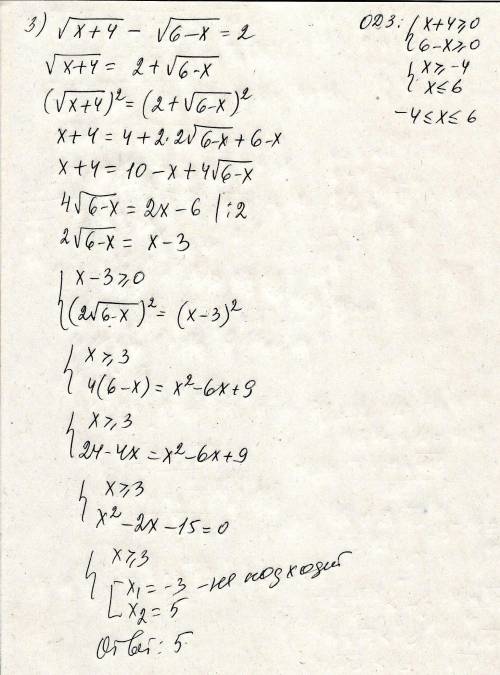 3) √(x+4) − √(6−x) = 2
ОДЗ: { x+4 ⩾ 0
6−x ⩾ 0
{ x ⩾ −4
x ⩽ 6
−4 ⩽ x ⩽ 6
√(x+4) = 2 + √(6−x)
(√(x+4))² = (2+√(6−x))²
x+4 = 4 + 2·2√(6−x) + 6−x
x+4 = 10 − x + 4√(6−x)
4√(6−x) = 2x − 6 | :2
2√(6−x) = x − 3
{ x−3 ⩾ 0
(2√(6−x))² = (x−3)²
{ x ⩾ 3
4(6−x) = x² − 6x + 9
{ x ⩾ 3
24−4x = x² − 6x + 9
{ x ⩾ 3
x² − 2x − 15 = 0
{ x ⩾ 3
[ x₁ = −3 – не подходит
x₂ = 5
Ответ: 5